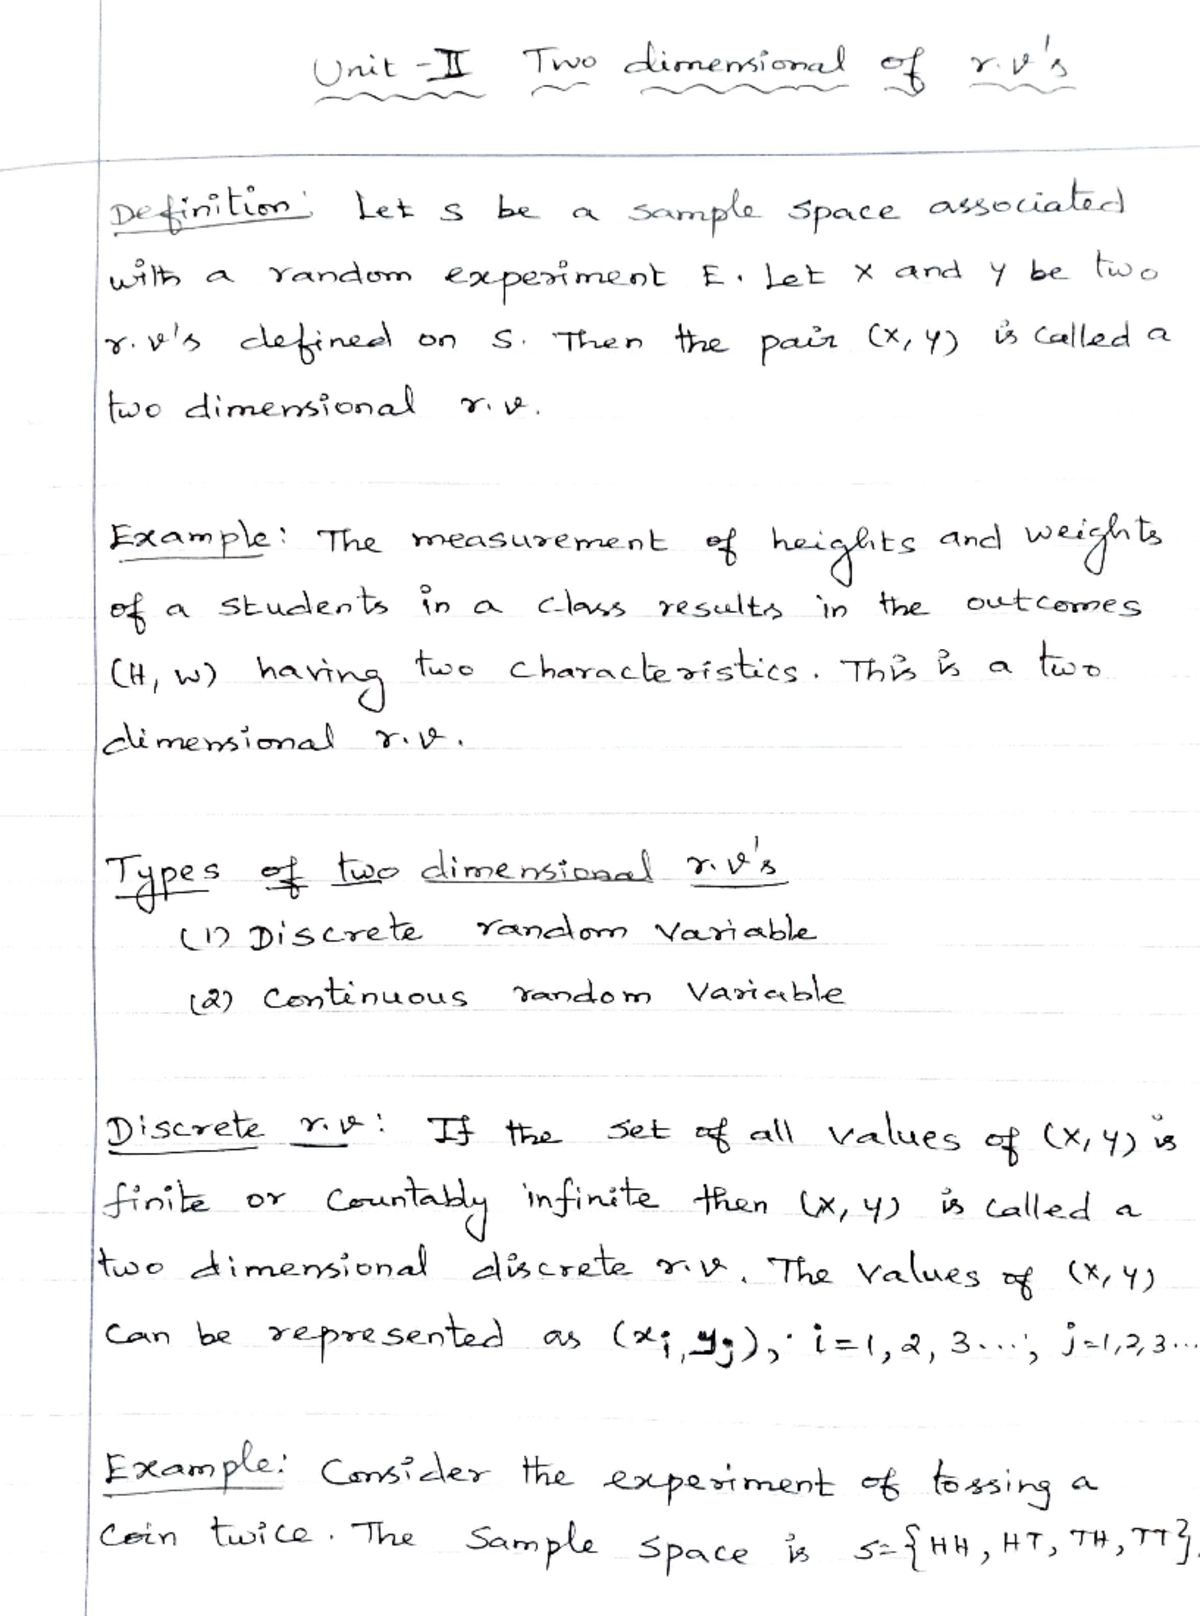 Unit - II Two dimensional of r.v's
Definition: Let S be a sample space associated
with a random experiment E. Let X and Y be two
r.v's defined on S. Then the pair (X, Y) is called a
two dimensional r.v.
Example: The measurement of heights and weights
of a students in a class results in the outcomes
(H, W) having two characteristics. This is a two
dimensional r.v.
Types of two dimensional r.v's
(1) Discrete random variable
(2) Continuous random variable
Discrete r.v: If the set of all values of (X, Y) is
finite or countably infinite then (X, Y) is called a
two dimensional discrete r.v. The values of (X, Y)
can be represented as (xi, yj), i=1, 2, 3...; j=1,2,3...
Example: Consider the experiment of tossing a
coin twice. The sample space is S={HH, HT, TH, TT}.